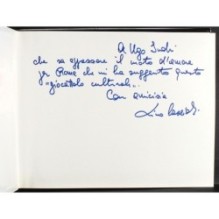 A Ugo
che sa appassare il moto d'amore
per Roma che mi ha suggerito questo
"giocattolo culturale".
Con amicizia